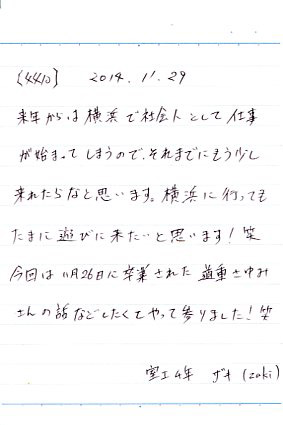 [4410] 2014. 11. 29
来年からは横浜で社会人として仕事
が始まってしまうので、それまでにもう少し
来れたらなと思います。横浜に行っても
たまに遊びに来たいと思います！笑
今回は11月26日に卒業された 道重さゆみ
さんの話などしたくてやって参りました！笑
室工4年 ザキ (zaki)